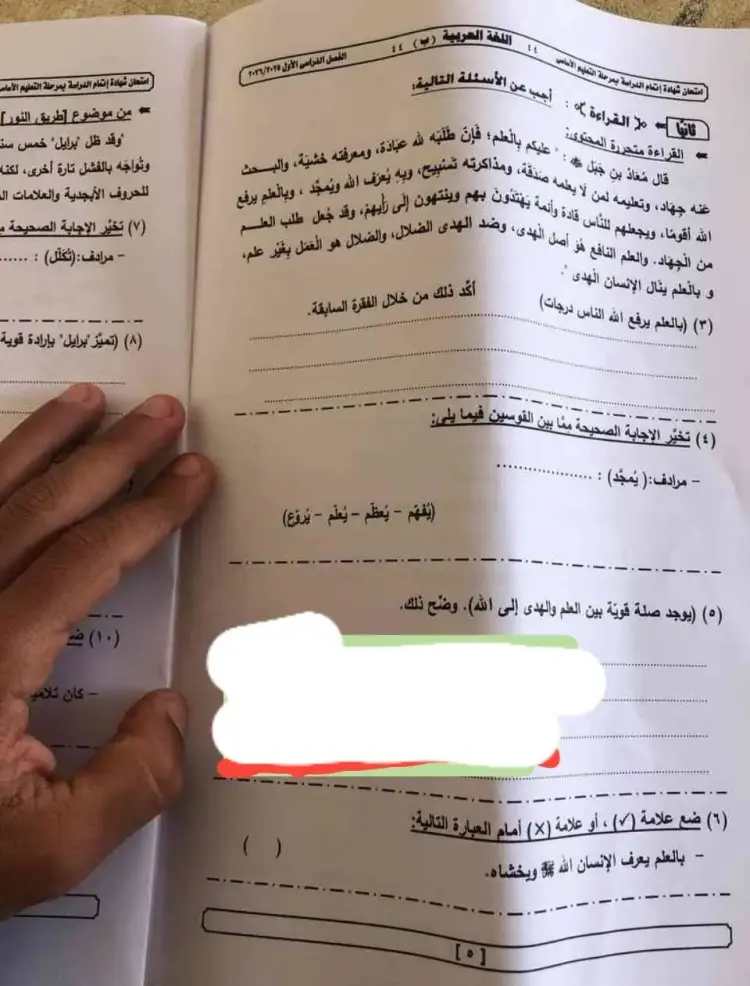 امتحان شهادة إتمام الدراسة بمرحلة التعليم الأساسى ٤٤ اللغة العربية (ب) ٤٤ الفصل الدراسى الأول ٢٠٢٦/٢٠٢٥
ثانيًا القراءة : أجب عن الأسئلة التالية:
القراءة متحررة المحتوى:
قال مُعَاذ بن جَبَل : " عليكم بالْعلم؛ فَإنَّ طَلَبَه لله عبَادَة، ومعرفته خشْيَة، والبــحث
عنه جهَاد، وتعليمه لمن لا يعلمه صَدَقَة، ومذاكرته تَسْبِيح، وبِه يُعرَف الله ويُمجَّد ، وبِالْعلم يرفع
الله أقومًا، ويجعلهم للنَّاس قادة وأئمة يَهْتَدُونَ بهم وينتهون إلى رَأيهمْ، وقد جُعل طلب العلــم
من الْجِهَاد. والعلم النافع هُوَ أصل الْهدى، وضد الهدى الضلال، والضلال هو الْعَمَل بِغَيْر علم،
و بالْعلم يَنَال الإنسان الْهدى ".
(٣) (بالعلم يرفع الله الناس درجات) أكّد ذلك من خلال الفقرة السابقة.
(٤) تخيَّر الإجابة الصحيحة ممَّا بين القوسين فيما يلى:
– مرادف:( يُمجَّد) : ..................
(يُفهّم – يُعظّم – يُعلّم – يُروّع)
(٥) (يوجد صلة قويّة بين العلم والهدى إلى الله). وضّح ذلك.
(٦) ضع علامة (✓) ، أو علامة (×) أمام العبارة التالية:
– بالعلم يعرف الإنسان الله ﷻ ويخشاه. ( )
[ ٥ ]
امتحان شهادة إتمام الدراسة بمرحلة التعليم الأساسى
من موضوع [طريق النور]
"وقد ظل "برايل" خمس
وتُواجَه بالفشل تارة أخرى، لكنه
للحروف الأبجدية والعلامات
(٧) تخيَّر الإجابة الصحيحة
– مرادف:(تُكَلَّل) : ......
(٨) (تميَّز "برايل" بإرادة قوية
(١٠)
– كان